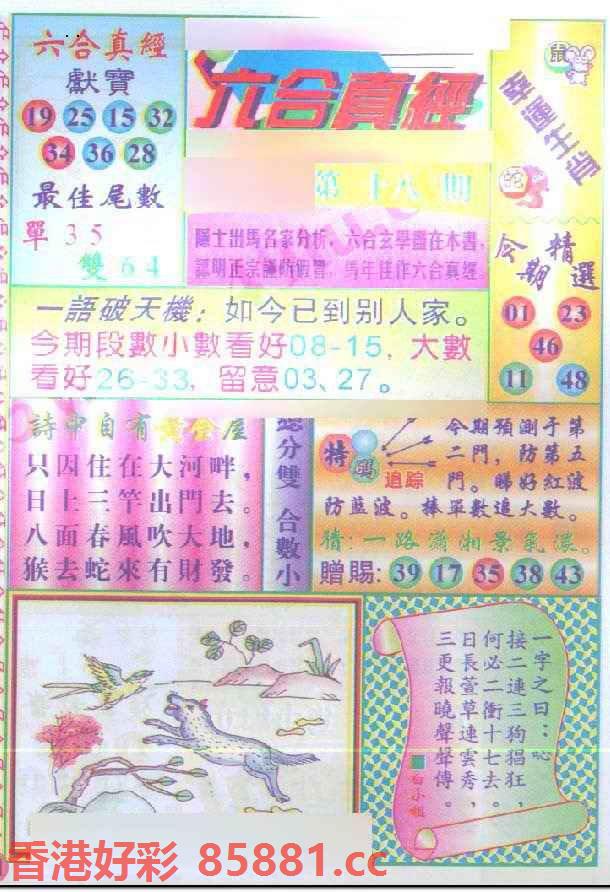 六合真經
獻寶
19 25 15 32
34 36 28
最佳尾數
單 3 5
雙 6 4
六合真經
第十八期
隱士出馬名家分析，六合玄學盡在本書，
認明正宗謹防假冒，馬年佳作六合真經。
鼠
幸運生肖
蛇
今期精選
01 23
46
11 48
一語破天機：如今已到别人家。
今期段數小數看好08-15，大數
看好26-33，留意03、27。
詩中自有黃金屋
只因住在大河畔，
日上三竿出門去。
八面春風吹大地，
猴去蛇來有財發。
總分雙 合數小
特碼
追踪
今期預測于第
二門，防第五
門。睇好紅波
防藍波。捧單數追大數。
猜：一路瀟湘景氣濃。
贈賜：39 17 35 38 43
一字之曰：吣
接二連三狗猖狂，
何必二衝十七去。
日長萱草連雲秀，
三更報曉聲聲傳。
白小姐
香港好彩 85881.cc